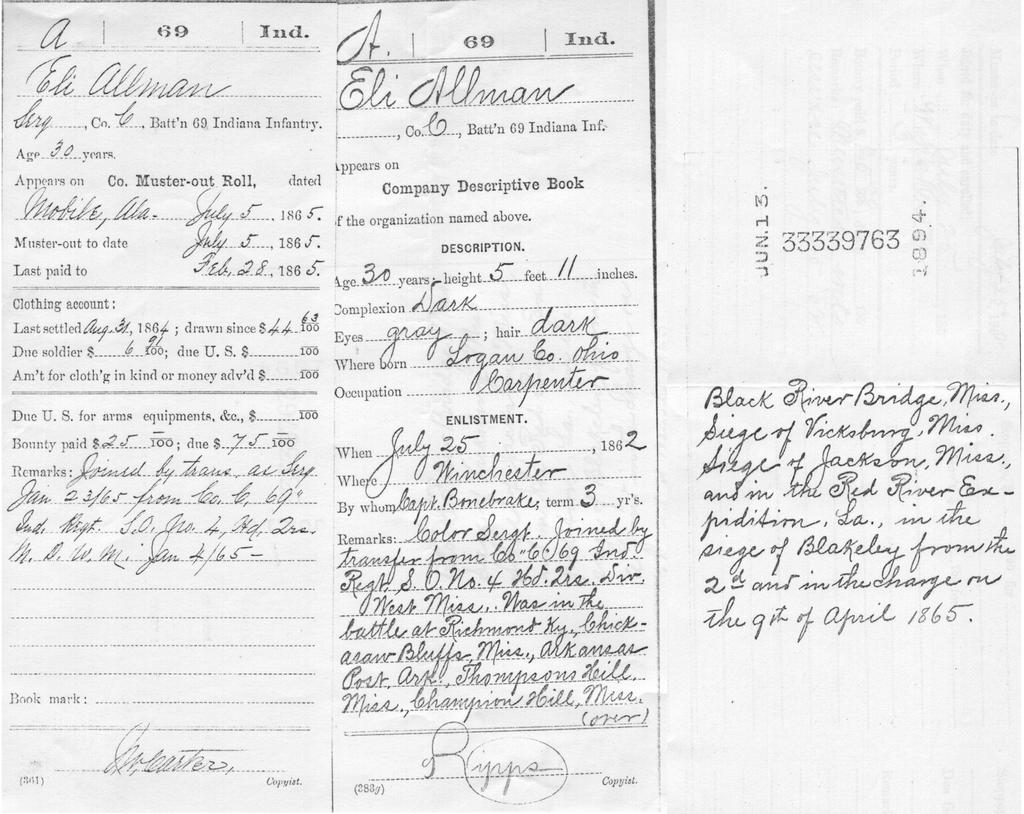 A | 69 | Ind.
Eli Allman
Serg, Co. C, Batt'n 69 Indiana Infantry.
Age 30 years.
Appears on Co. Muster-out Roll, dated
Mobile, Ala- July 5, 1865.
Muster-out to date July 5, 1865.
Last paid to Feb. 28, 1865.
Clothing account:
Last settled Aug 31, 1864; drawn since $ 44 63/100
Due soldier $ 6 91/100; due U. S. $ /100
Am't for cloth'g in kind or money adv'd $ /100
Due U. S. for arms equipments, &c., $ /100
Bounty paid $ 25 /100; due $ 75 /100
Remarks: Joined by trans. as Serg
Jan 23/65 from Co. C, 69"
Ind. Regt. S.O. No. 4, Hd. 2rs.
M. D. W. M. Jan 4/65-
Book mark:
Copyist.
(361)
A. | 69 | Ind.
Eli Allman
, Co. C, Batt'n 69 Indiana Inf.
Appears on
Company Descriptive Book
of the organization named above.
DESCRIPTION.
Age 30 years; height 5 feet 11 inches.
Complexion Dark
Eyes gray; hair dark
Where born Logan Co. Ohio
Occupation Carpenter
ENLISTMENT.
When July 25, 1862
Where Winchester
By whom Capt. Bonebrake; term 3 yr's.
Remarks: Color Sergt. Joined by
transfer from Co "C" 69 Ind.
Regt. S. O. No. 4 Hd. 2rs. Div.
West Miss. Was in the
battle at Richmond Ky., Chick-
asaw Bluffs, Miss., Arkansas
Post, Ark., Thompsons Hill,
Miss., Champion Hill, Miss.
(over)
Ripps
Copyist.
(383g)
JUN. 13.
33339763
1894.
Black River Bridge, Miss.,
Siege of Vicksburg, Miss.
Siege of Jackson, Miss.,
and in the Red River Ex-
pidition, La., in the
siege of Blakeley from the
2d and in the charge on
the 9th of April 1865.